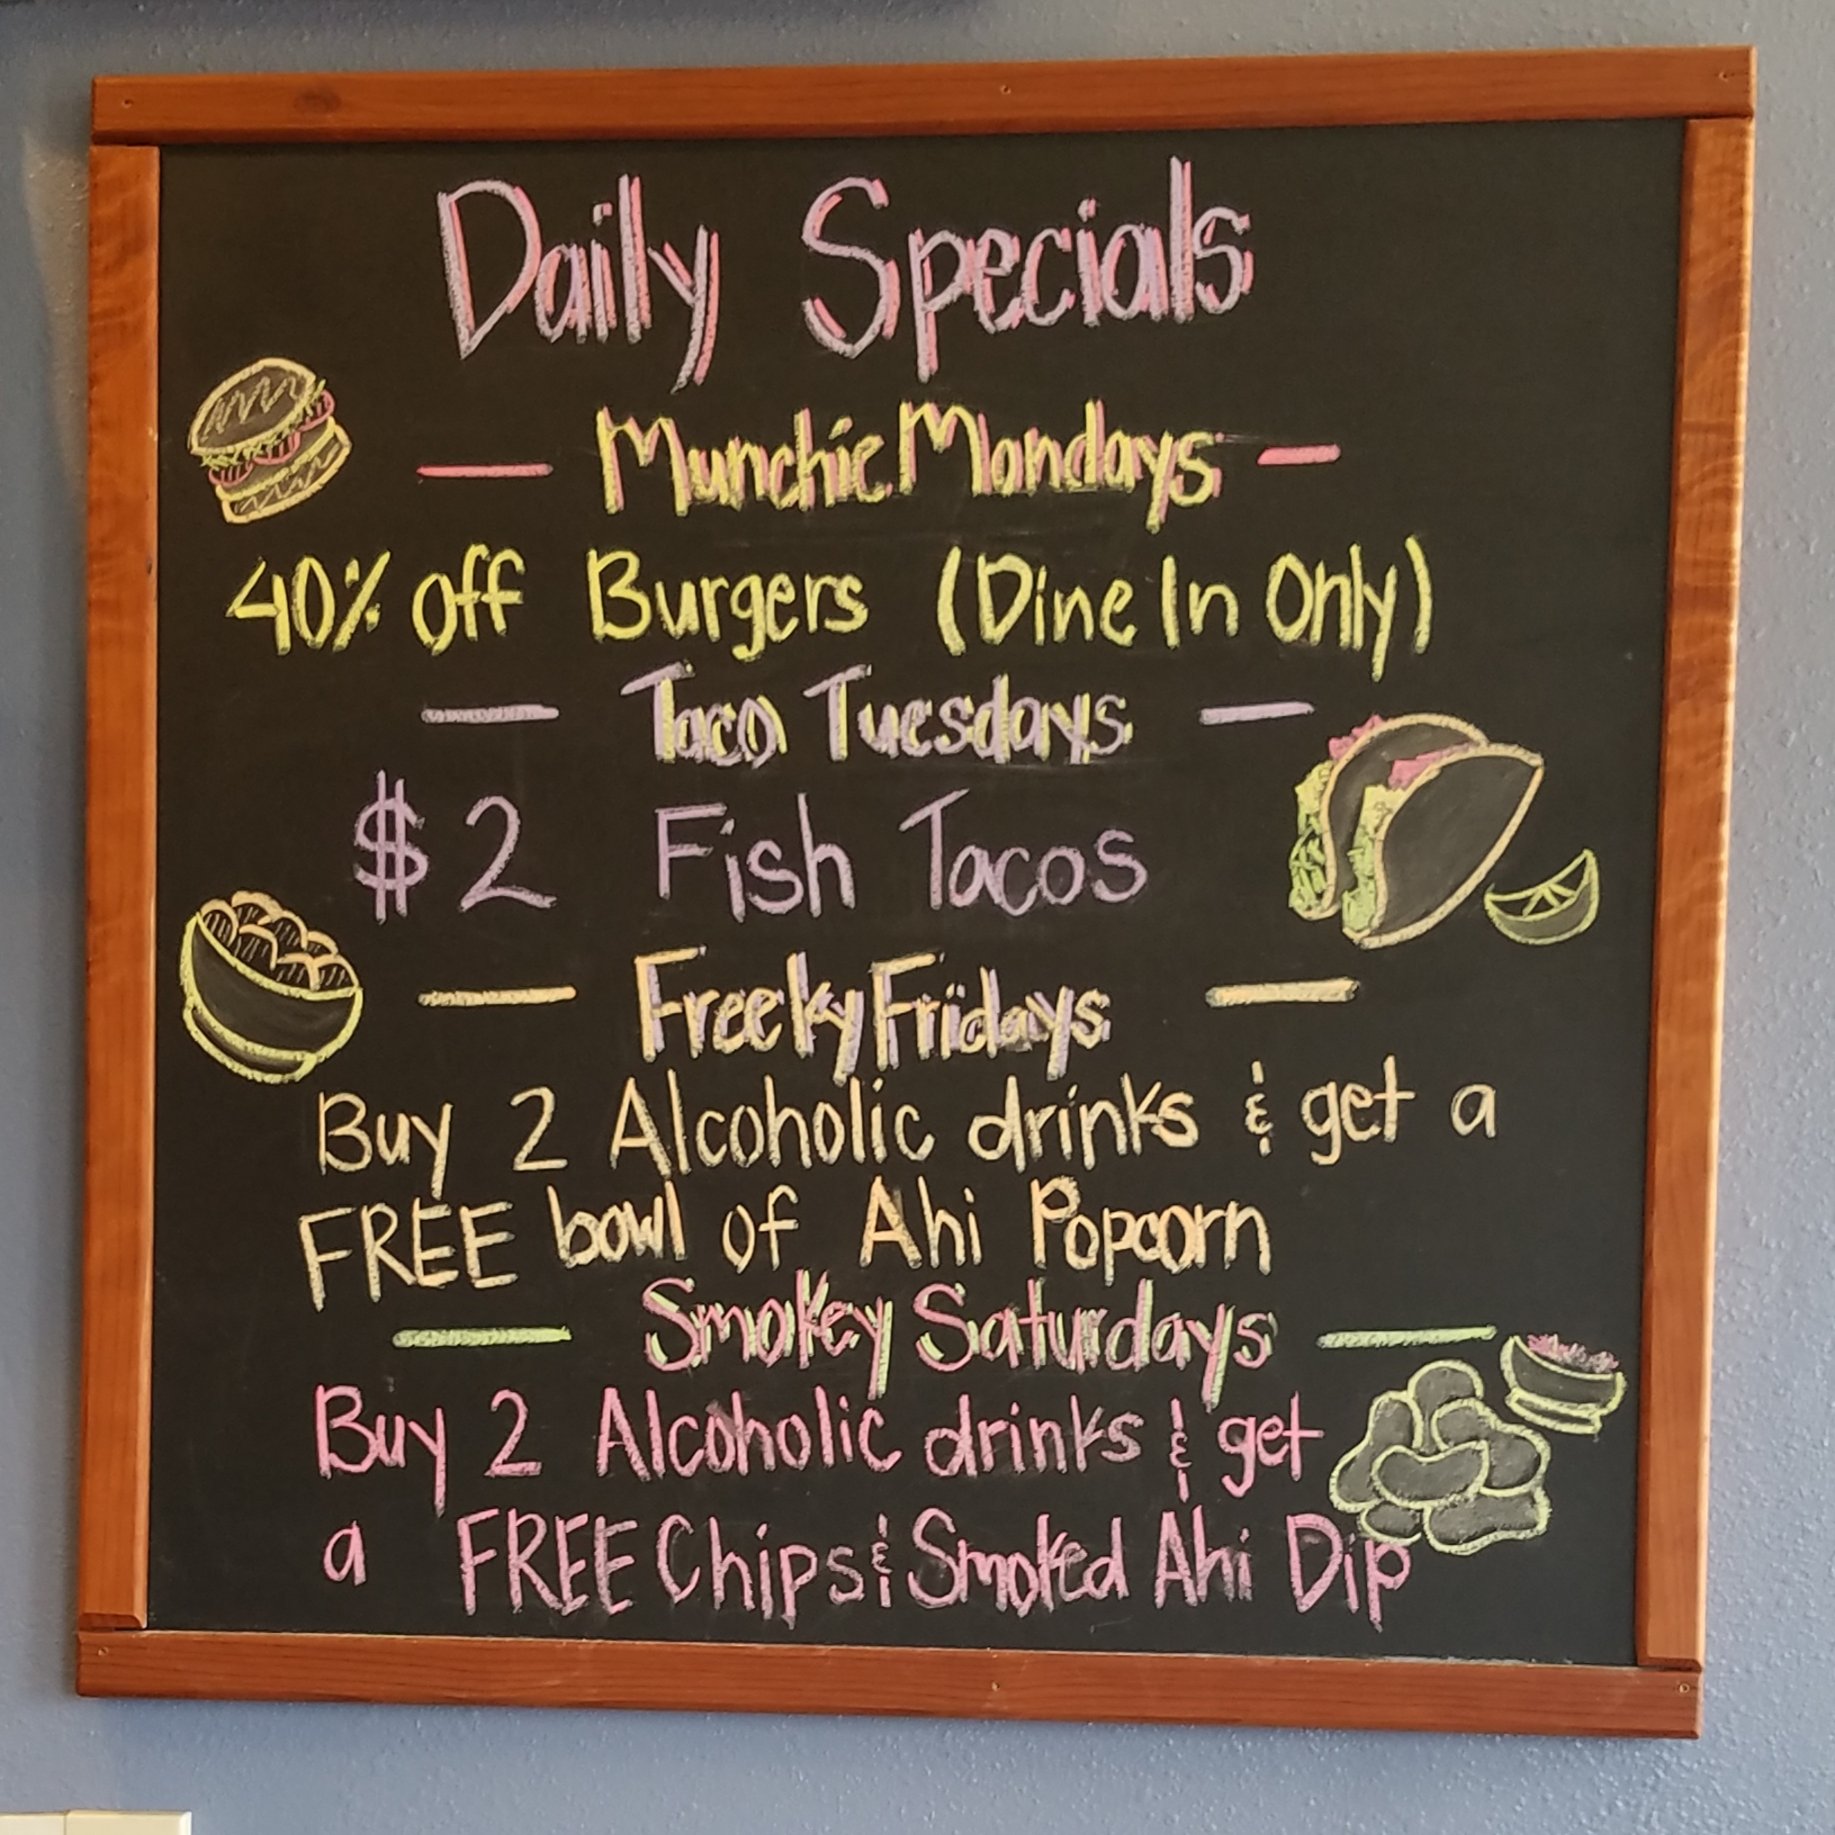 Daily Specials
Munchie Mondays
40% off Burgers (Dine In Only)
Taco Tuesdays
$2 Fish Tacos
Freeky Fridays
Buy 2 Alcoholic drinks & get a
FREE bowl of Ahi Popcorn
Smokey Saturdays
Buy 2 Alcoholic drinks & get
a FREE Chips & Smoked Ahi Dip